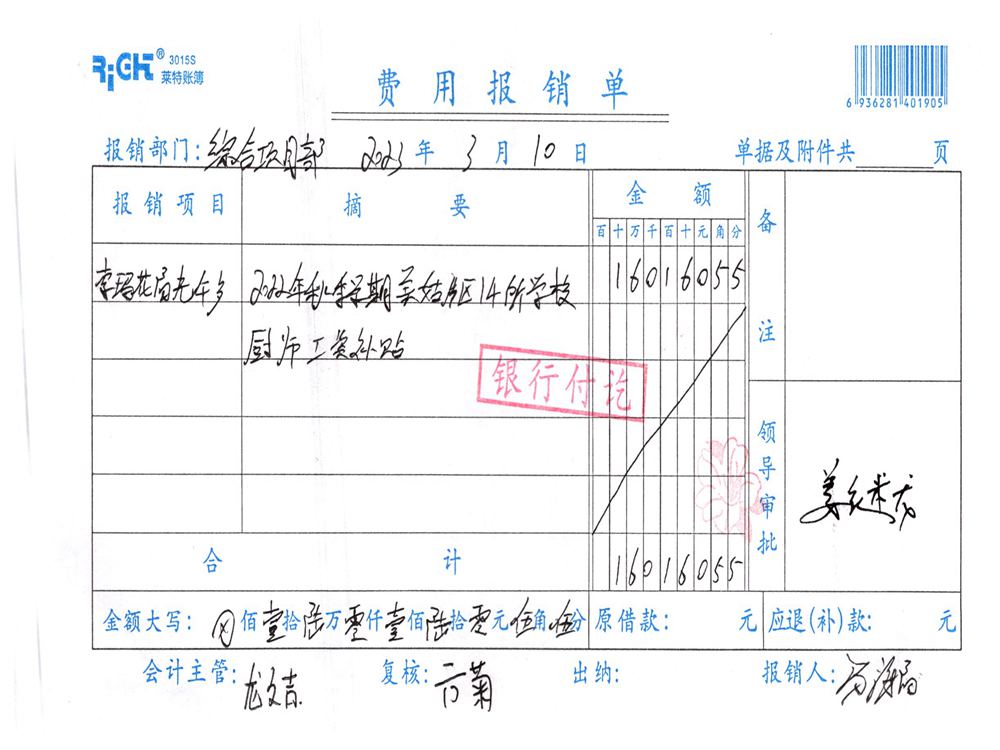 RiGHT® 3015S
莱特账簿
费用报销单
6 936281 401905
报销部门: 综合项目部 2023 年 3 月 10 日 单据及附件共 页
报销项目 摘要 金额 备注
百 十 万 千 百 十 元 角 分
2022年秋季学期美姑片区14所学校 1 6 0 1 6 0 5 5
厨师工资补贴
银行付讫
领导审批
合计 1 6 0 1 6 0 5 5
金额大写: ⊗ 佰 壹 拾 陆 万 零 仟 壹 佰 陆 拾 零 元 伍 角 伍 分 原借款: 元 应退(补)款: 元
会计主管: 龙文吉 复核: 菊 出纳: 报销人: